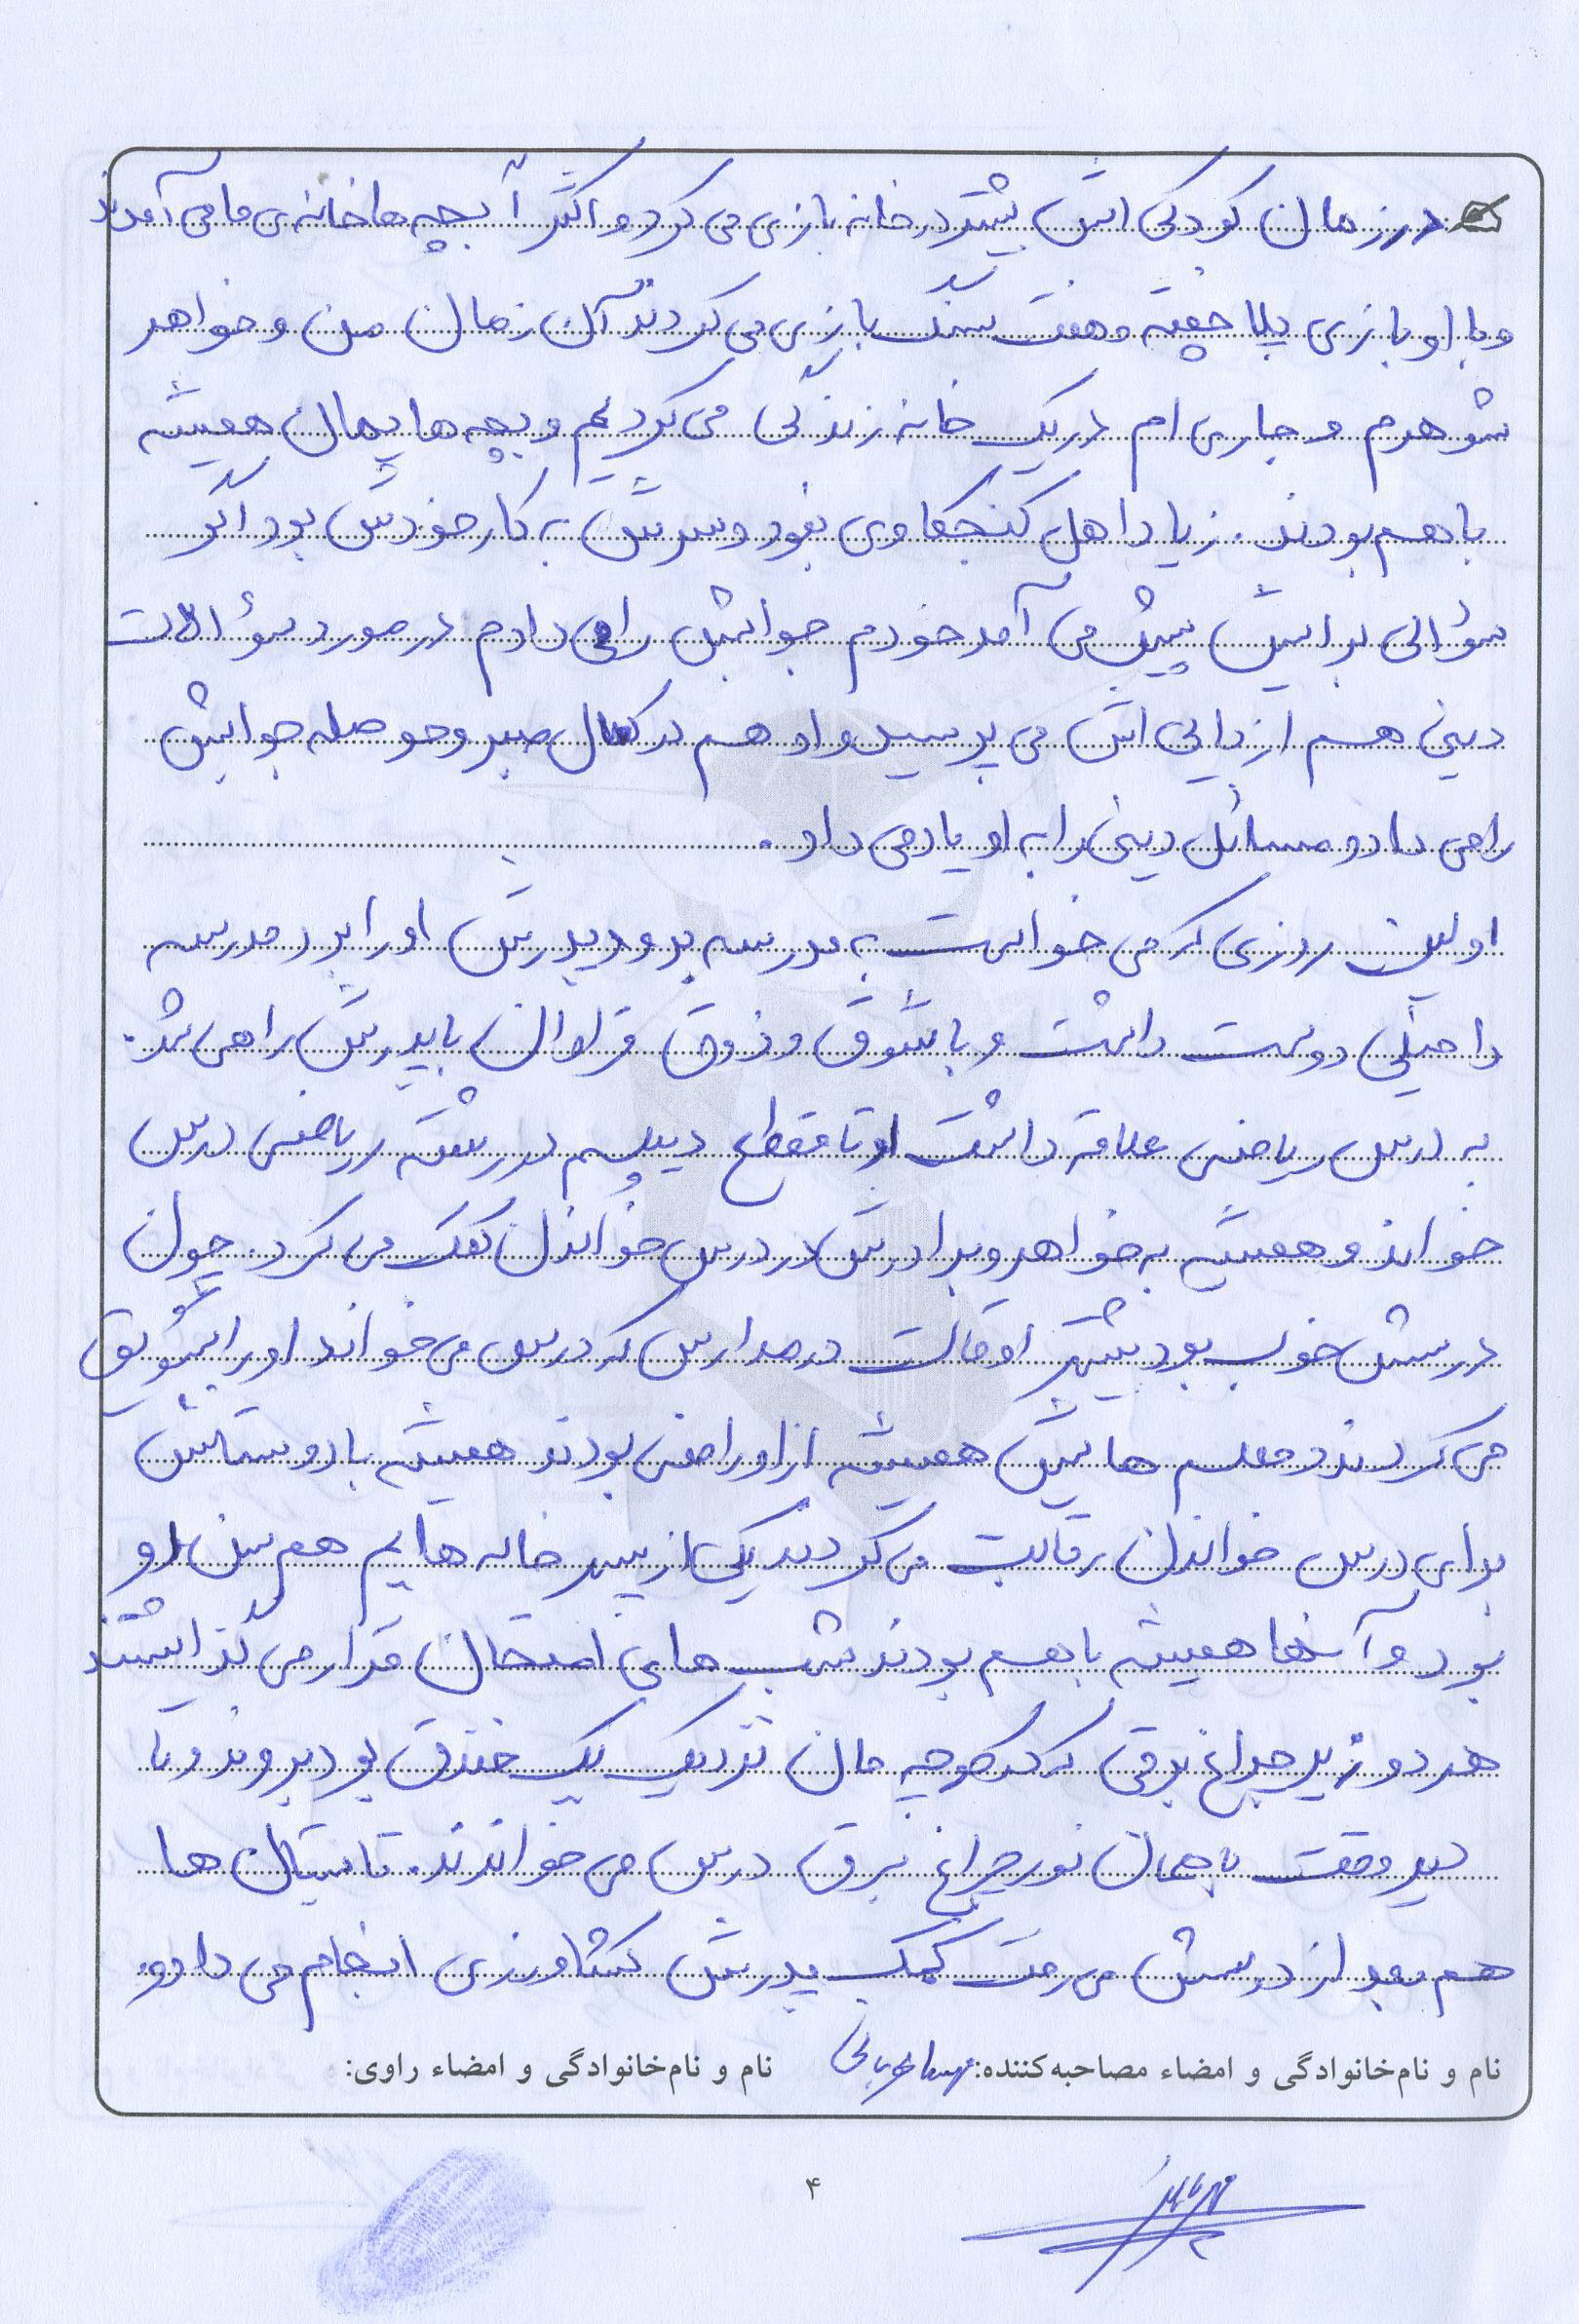 در زمان کودکی اش بیشتر در خانه بازی می کرد و اکثراً بچه ها خانه ی ما می آمدند
و با او بازی یلا چفته و هفت سنگ بازی می کردند آن زمان من و خواهر
شوهرم و جاری ام در یک خانه زندگی می کردیم و بچه هایمان همیشه
با هم بودند. زیاد اهل کنجکاوی نبود و سرش به کار خودش بود اگر
سؤالی برایش پیش می آمد خودم جوابش را می دادم در مورد سؤالات
دینی هم از دایی اش می پرسید و او هم در کمال صبر و حوصله جوابش
را می داد و مسائل دینی را به او یاد می داد.
اولین روزی که می خواست به مدرسه برود پدرش او را برد مدرسه
را خیلی دوست داشت و با شوق و ذوق فراوان با پدرش راهی شد.
به درس ریاضی علاقه داشت او تا مقطع دیپلم در رشته ریاضی درس
خواند و همیشه به خواهر و برادرش در درس خواندن کمک می کرد. چون
درسش خوب بود بیشتر اوقات در مدارس که درس می خواند او را تشویق
می کردند و معلم هایش همیشه از او راضی بودند همیشه با دوستانش
برای درس خواندن رقابت می کردند یکی از پسر خاله هایم هم سن او
بود و آنها همیشه با هم بودند شب های امتحان قرار می گذاشتند
هر دو زیر چراغ برقی که کوچه مان نزدیک یک خندق بود بروند و تا
دیر وقت با همان نور چراغ برق درس می خواندند. تابستان ها
هم بعد از درسش می رفت کمک پدرش کشاورزی انجام می داد و
نام و نام‌خانوادگی و امضاء مصاحبه‌کننده: نام و نام‌خانوادگی و امضاء راوی:
۴